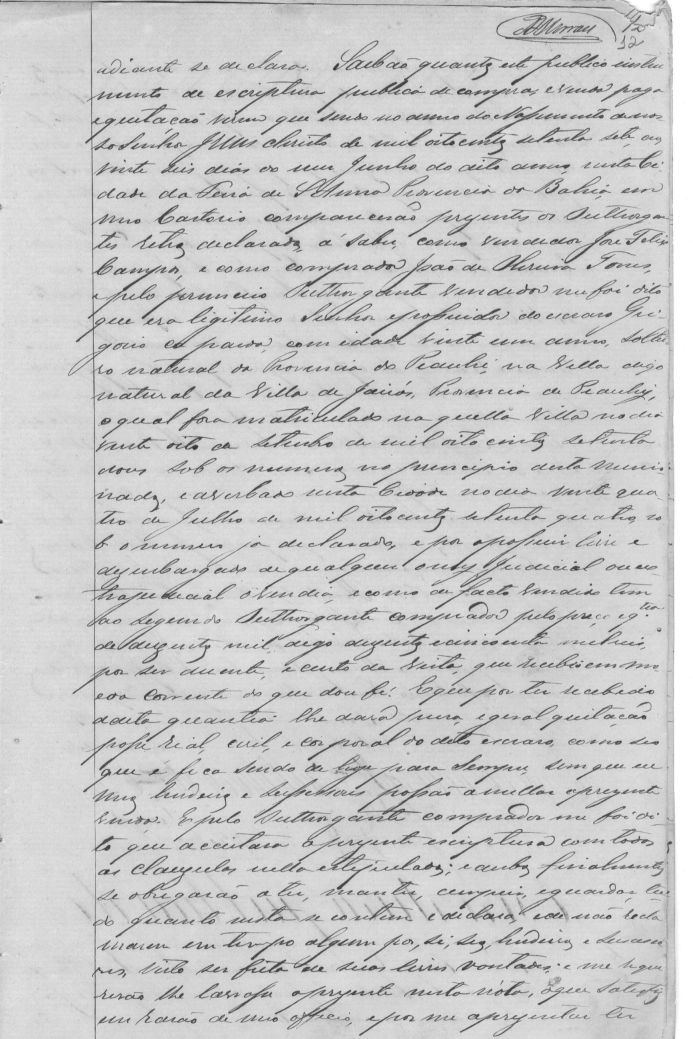 12
12
adiante se declara. Saibão quantos este publico instru
mento de escriptura publica de compra, e venda paga
e quitação virem que sendo no anno do Nascimento de nos
so Senhor Jesus Christo de mil oito centos setenta sete aos
vinte seis dias do mez Junho do dito anno, nesta Ci
dade da Feira de Sta Anna Provincia da Bahia, em
meo Cartorio comparecerão prezentes os Outhorgan
tes retro declarados, á saber, como vendedor José Felix
Campos, e como comprador João de Oliveira Torres,
e pelo primeiro Outhorgante vendedor me foi dito
que era legitimo Senhor e possuidor do escravo Gri
gorio côr parda, com idade vinte um annos, soltei
ro natural da Provincia do Piauhi, na Villa digo
natural da Villa de Jaicós, Provincia de Piauhy,
o qual fora matriculado na quella Villa no dia
vinte oito de setembro de mil oito centos setenta
dous sob os numeros no principio desta menci
onados, e averbado nesta Cidade no dia vinte qua
tro de Julho de mil oito centos setenta quatro so
b o numero ja declarado, e por o possuir livre e
dezembargado de qualquer onus judicial ou ex
trajudicial o vendia, e como de facto vendido tem
ao segundo Outhorgante comprador pelo preço e q.tia
de duzentos mil, digo duzentos e cincoenta mil reis,
por ser doente, e curto da vista, que recebeo em mo
eda corrente do que dou fé. E que por ter recebido
a dita quantia lhe dará pura, e geral quitação
posse real, civil, e corporal do dito escravo, como seo
que é fica sendo de hoje para sempre, sem que eu
meus herdeiros e sucessores possão annullar a prezente
venda. E pelo Outhorgante comprador me foi di
to que acceitava a prezente escriptura com todas
as clauzulas nella estipuladas; e ambos finalmente
se obrigarão a ter, manter, cumprir, e guardar tu
do quanto nesta se contem e declara, e de não recla
marem em tempo algum por si, seus herdeiros e sucesso
res, visto ser feita de suas livres vontades; e me reque
rerão lhe lavrasse a prezente nesta nota, o que satisfiz
em razão de meo officio, e por me aprezentar ter